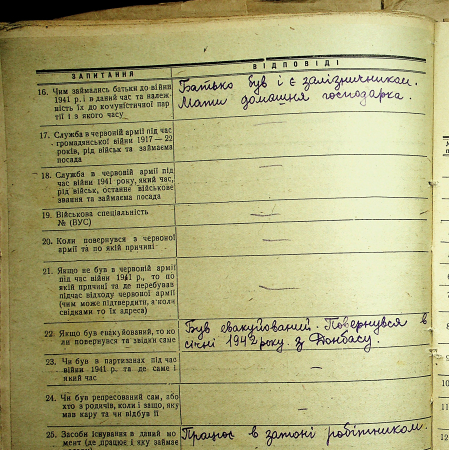 ЗАПИТАННЯ
ВІДПОВІДІ
16. Чим займались батьки до війни
1941 р. і в даний час та належ-
ність їх до комуністичної пар-
тії і з якого часу
Батько був і є залізничником.
Мати домашня господарка.
17. Служба в червоній армії під час
громадянської війни 1917—22
років, рід військ та займаєма
посада
18. Служба в червоній армії під
час війни 1941 року, який час,
рід військ, останнє військове
звання та займаєма посада
19. Військова спеціальність
№ (ВУС)
20. Коли повернувся з червоної
армії та по якій причині
21. Якщо не був в червоній армії
під час війни 1941 р., то по
якій причині та де перебував
підчас відходу червоної армії
(чим може підтвердити, з кол.
свідками то їх адреса)
22. Якщо був евакуйований, то ко-
ли повернувся та звідки саме
Був евакуйований. Повернувся в
січні 1942 року з Донбасу.
23. Чи був в партизанах під час
війни 1941 р. та де саме і
який час
24. Чи був репресований сам, або
хто з родичів, коли і защо, яку
мав кару та чи відбув її
25. Засоби існування в даний мо-
мент (де працює і яку займає
Працює в затоні робітником.